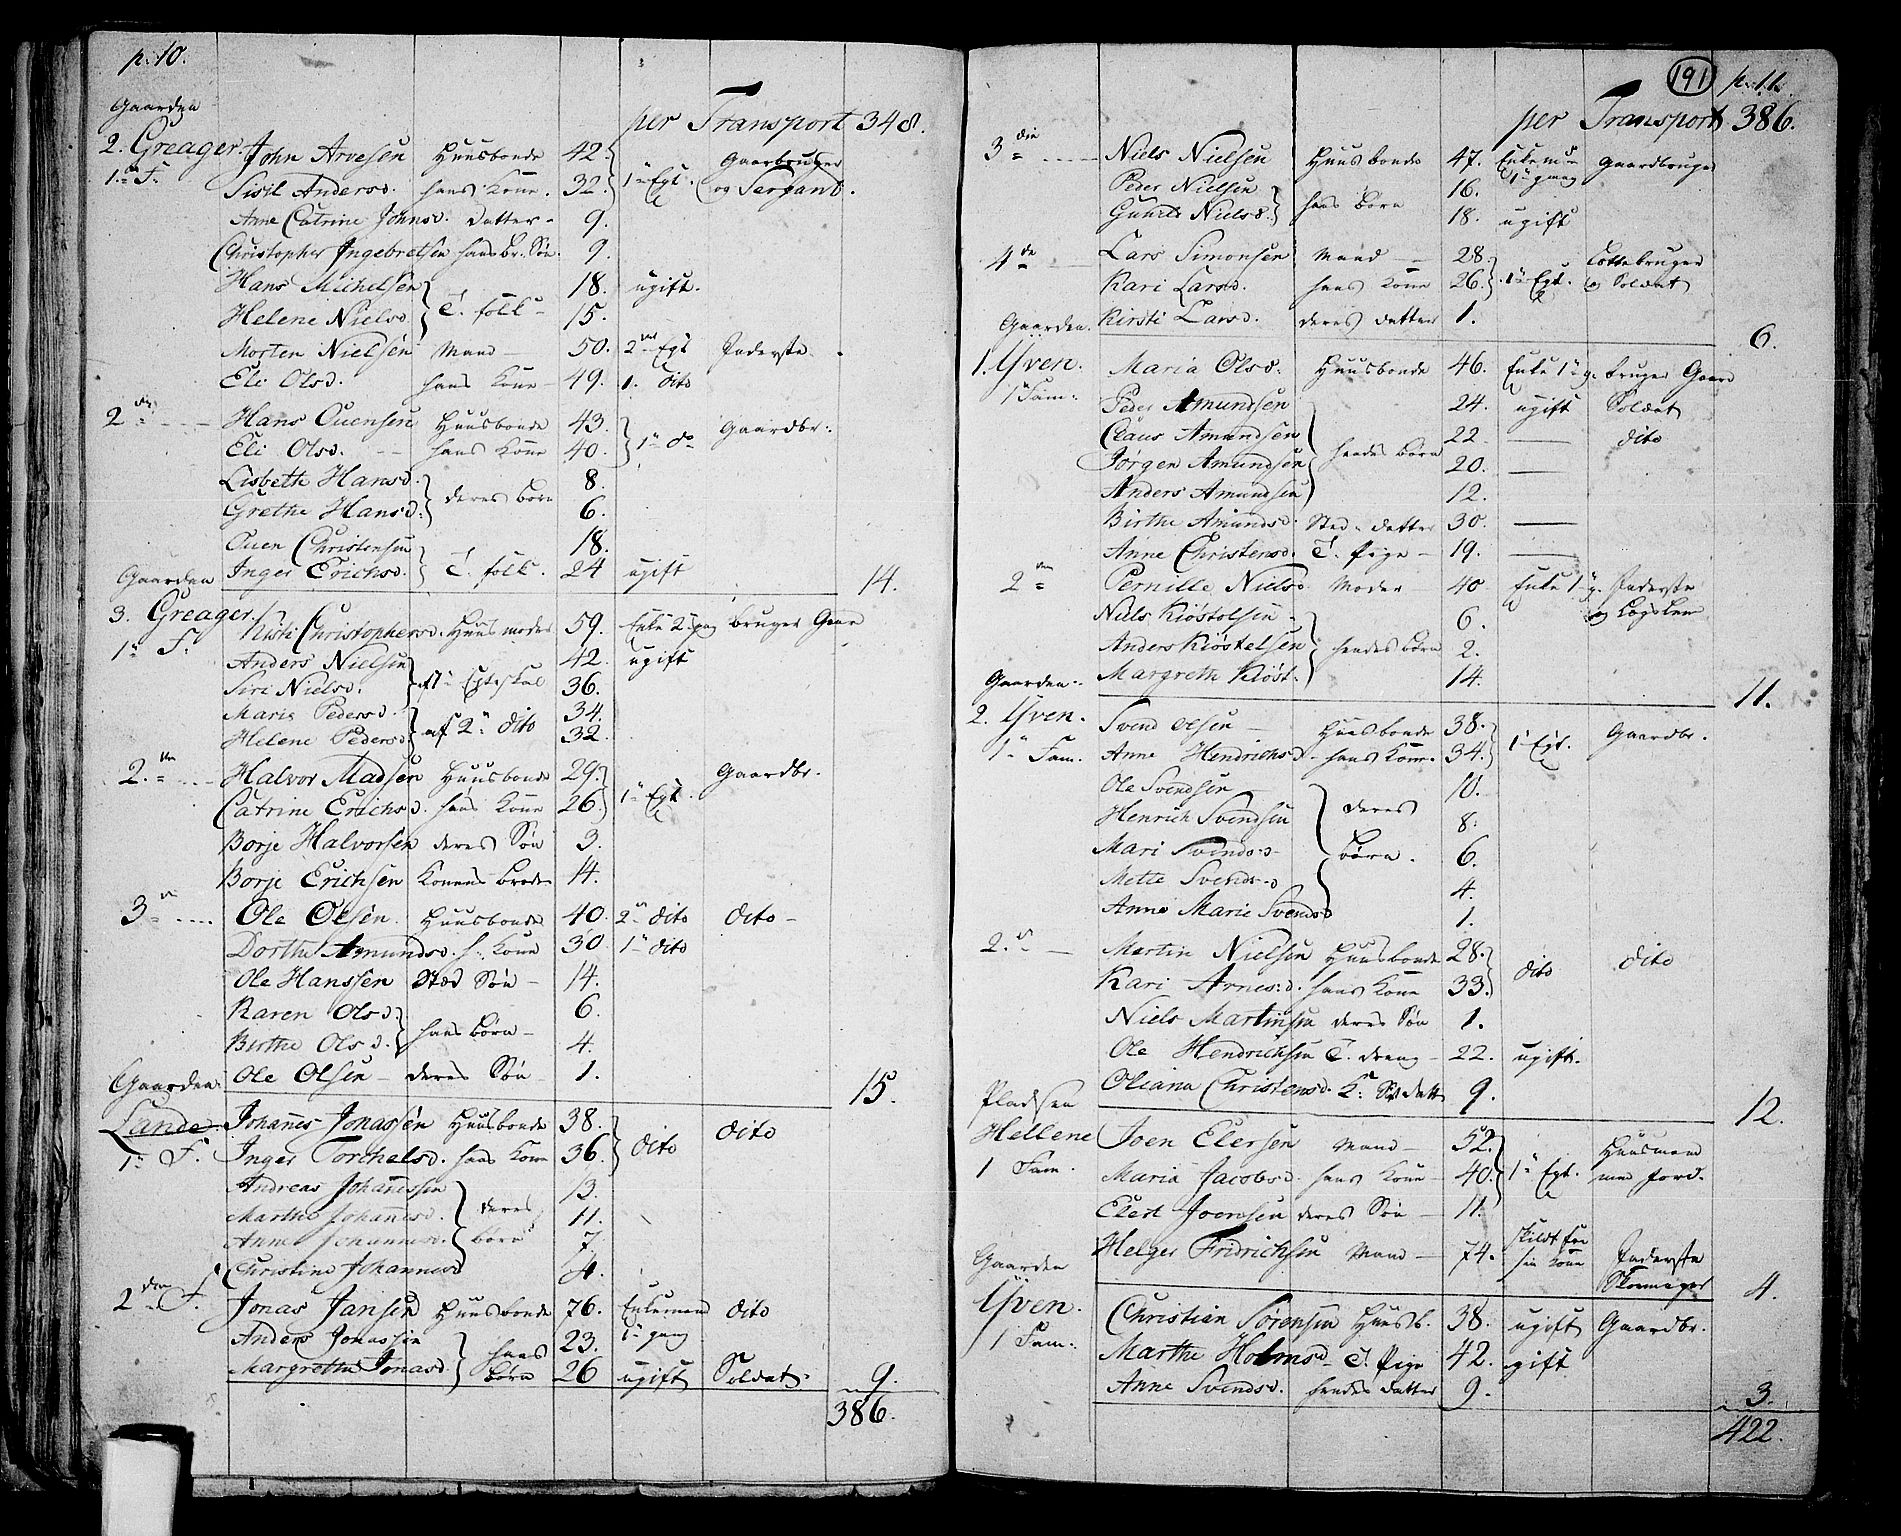 p. 10.
per Transport 348.
Gaarden
2. Greager. John Arvesen Huusbonde 42. 1te Egt. Gaardbruger
1te F. Sisil Andersd. hans Kone. 32. og Sergant.
Anne Catrine Johnsd. Datter 9.
Christopher Ingebretsen hans br. Søn. 9.
Hans Mikelsen T. folk 18. ugift.
Helene Nielsd. 15.
Morten Nielsen Mand 50. 2det Egt Inderste
Eli Olsd. hans Kone 49. 1. dito
2den Hans Ouensen Huusbonde 43. 1te do Gaardbr.
Eli Olsd. hans Kone 40.
Lisbeth Hansd. deres børn 8.
Grethe Hansd. 6.
Ouen Christensen T. folk. 18.
Inger Erichsd. 24 ugift 14.
Gaarden
3. Greager. Kisti Christophersd. Huusmoder 59. Enke 2. gang bruger Gaar
1te F. Anders Nielsen af 1te Egteskab 42. ugift
Siri Nielsd. 36.
Maria Pedersd. af 2det dito 34.
Helene Pedersd. 32.
2den Halvor Madsen Huusbonde 29. 1te Egt. Gaardbr.
Catrine Erichsd. hans Kone 26.
Borje Halvorsen deres Søn 3.
Borje Erichsen Konens Broder 14.
3de Ole Olsen. Huusbonde 40. 2det dito dito
Dorthe Amundsd. h. Kone 30. 1te dito
Ole Hanssen Sted Søn 14.
Karen Olsd. hans børn 6.
Birthe Olsd. 4.
Ole Olsen deres Søn 1. 15.
Gaarden
Lande. Johannes Jonassen Huusbonde 38. dito dito
1te F. Inger Torchelsd. hans Kone 36.
Andreas Johannessen deres 13.
Marthe Johannesd. børn 11.
Anne Johannesd. 7.
Christine Johannesd 4.
2den F. Jonas Jansen Huusbonde 76. Enkemand dito
Anders Jonassen hans 23. 1te gang
Margrethe Jonasd. børn 26 ugift Soldat. 9.
386.
191 p. 11.
per Transport 386.
3die Niels Nielsen Huusbonde 47. Enkem. Gaardbruger
Peder Nielsen hans børn 16. 1te gang
Gunild Nielsd. 18. ugift
4de Lars Simonsen Mand 28. 1te Egt. Lottebruger
Kari Larsd. hans Kone 26. og Soldat
Kirsti Larsd. deres datter 1. 6.
Gaarden.
1. Yven. Maria Olsd. Huusbonde 46. Enke 1te g. bruger Gaard
1te Fam. Peder Amundsen hendes børn 24. ugift Soldat
Claus Amundsen 22 dito
Jørgen Amundsen 20.
Anders Amundsen 12.
Birthe Amundsd. Sted datter 30.
Anne Christensd. T. Pige 19.
2den Pernille Nielsd Moder 40 Enke 1te g. Inderste
Niels Kiøstolsen 6. og Lægslem
Anders Kiøstelsen hendes børn 2.
Margreth Kiøst. 14. 11.
Gaarden.
2. Yven. Svend Olsen Huusbonde 38. 1te Egt. Gaardbr.
1te Fam. Anne Hendrichsd hans Kone. 34.
Ole Svendsen deres 10.
Henrich Svendsen børn. 8.
Mari Svendsd 6.
Mette Svendsd 4.
Anne Marie Svendsd 1.
2den Martin Nielsen Huusbonde 28. dito dito
Kari Arnesd. hans Kone 33.
Niels Martinsen deres Søn 1.
Ole Hendrichsen T. dreng 22. ugift.
Oliana Christensd. K. Sst datt 9. 12.
Pladsen
Hellene Joen Elersen Mand 52. 1te Egt. Huusmand
1 Fam. Maria Jacobsd. hans Kone 40. med Jord.
Elert Joensen deres Søn 11.
Helger Fridrichsen Mand 74. skildt fra sin Kone Inderste Skoemager 4.
Gaarden
Yven. Christian Sørensen Huusb. 38. ugift Gaardbr.
1 Fam. Marthe Holmsd T. Pige 42. ugift
Anne Svendsd. hendes datter 9. 3.
422.